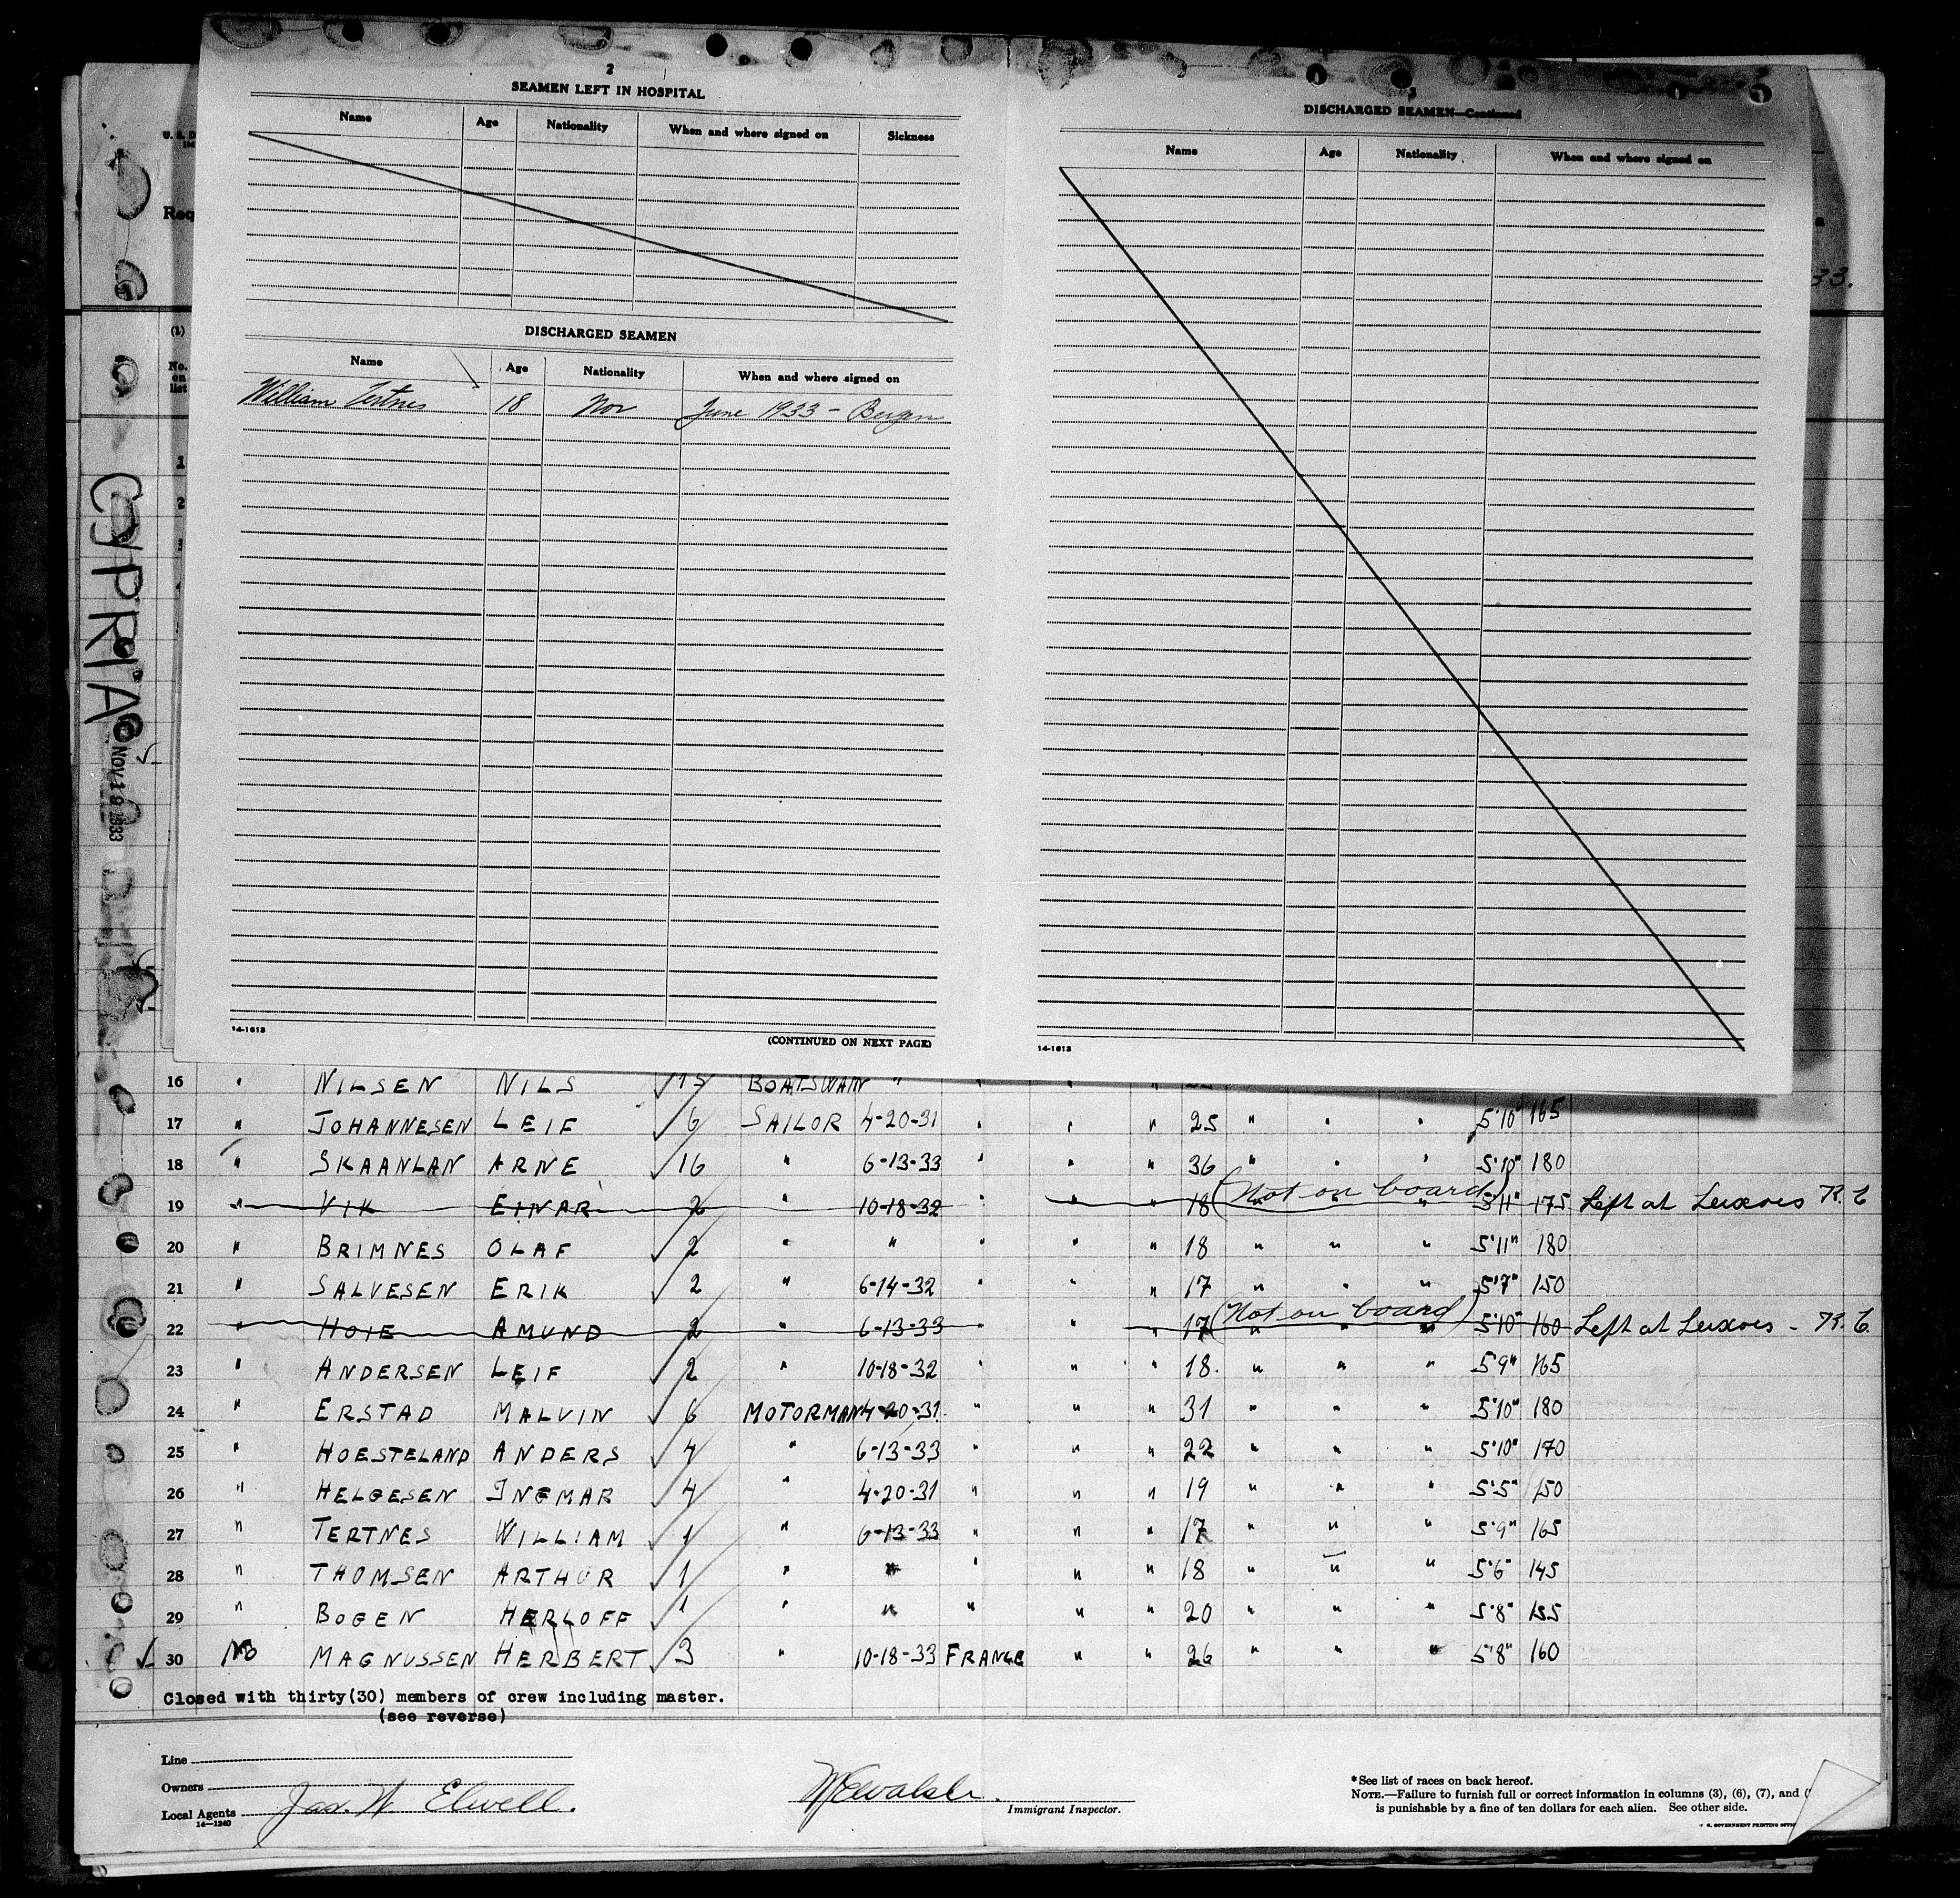 2
SEAMEN LEFT IN HOSPITAL
Name Age Nationality When and where signed on Sickness
DISCHARGED SEAMEN
Name Age Nationality When and where signed on
William Tertnes 18 Nor June 1933 - Bergen
14-1613
(CONTINUED ON NEXT PAGE)
3
DISCHARGED SEAMEN—Continued
Name Age Nationality When and where signed on
14-1613
U. S. D
Req
33.
(1)
No. on list
1
2
3
4
CYPRIA
NOV 19 1933
16 " NILSEN NILS 15 BOATSWAIN " " " "
17 " JOHANNESEN LEIF √ 6 SAILOR 4-20-31 " " " 25 " " " 5'10" 165
18 " SKAANLAN ARNE √ 16 " 6-13-33 " " " 36 " " " 5'10" 180
19 " VIK EINAR 2 " 10-18-32 " " 18 (Not on board) " 5'11" 175 Left at R. C
20 " BRIMNES OLAF √ 2 " " " " " 18 " " " 5'11" 180
21 " SALVESEN ERIK √ 2 " 6-14-32 " " " 17 " " " 5'7" 150
22 " HOIE AMUND 2 " 6-13-33 " " 17 (Not on board) " " " 5'10" 160 Left at - R. C.
23 " ANDERSEN LEIF √ 2 " 10-18-32 " " " 18 " " " 5'9" 165
24 " ERSTAD MALVIN √ 6 MOTORMAN 4-20-31 " " " 31 " " " 5'10" 180
25 " HOESTELAND ANDERS √ 4 " 6-13-33 " " " 22 " " " 5'10" 170
26 " HELGESEN INGMAR √ 4 " 4-20-31 " " " 19 " " " 5'5" 150
27 " TERTNES WILLIAM √ 1 " 6-13-33 " " " 17 " " " 5'9" 165
28 " THOMSEN ARTHUR √ 1 " " " " " 18 " " " 5'6" 145
29 " BOGEN HERLOFF √ 1 " " " " " 20 " " " 5'8" 155
√ 30 NO MAGNUSSEN HERBERT √ 3 " 10-18-33 FRANCE " " 26 " " " 5'8" 160
Closed with thirty(30) members of crew including master.
(see reverse)
Line
Owners
Local Agents Jas. W. Elwell.
14—1240
Immigrant Inspector.
*See list of races on back hereof.
NOTE.—Failure to furnish full or correct information in columns (3), (6), (7), and (
is punishable by a fine of ten dollars for each alien. See other side.
U. S. GOVERNMENT PRINTING OFFICE